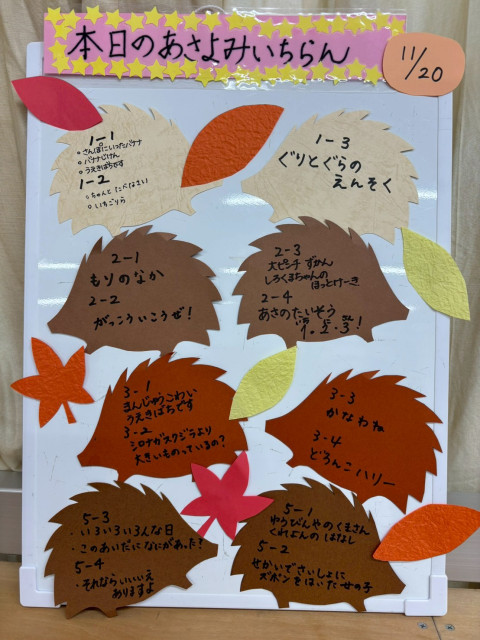 本日のあさよみいちらん
11/20
1-1
○さんぽにいったバナナ
○バナナじけん
○うえきばちです
1-2
○ちゃんとたべなさい
○いちごりら
1-3
ぐりとぐらの
えんそく
2-1
もりのなか
2-2
がっこういこうぜ!
2-3
大ピンチずかん
しろくまちゃんの
ほっとけーき
2-4
あさのたいそう
1.2.3!
3-1
まんじゅうこわい
うえきばちです
3-2
シロナガスクジラより
大きいものっているの?
3-3
かなわね
3-4
どろんこハリー
5-3
・いろいろいろんな日
・このあいだになにがあった?
5-4
・それならいいいえ
ありますよ
5-1
ゆうびんやのくまさん
くれよんのはなし
5-2
せかいでさいしょに
ズボンをはいた女の子